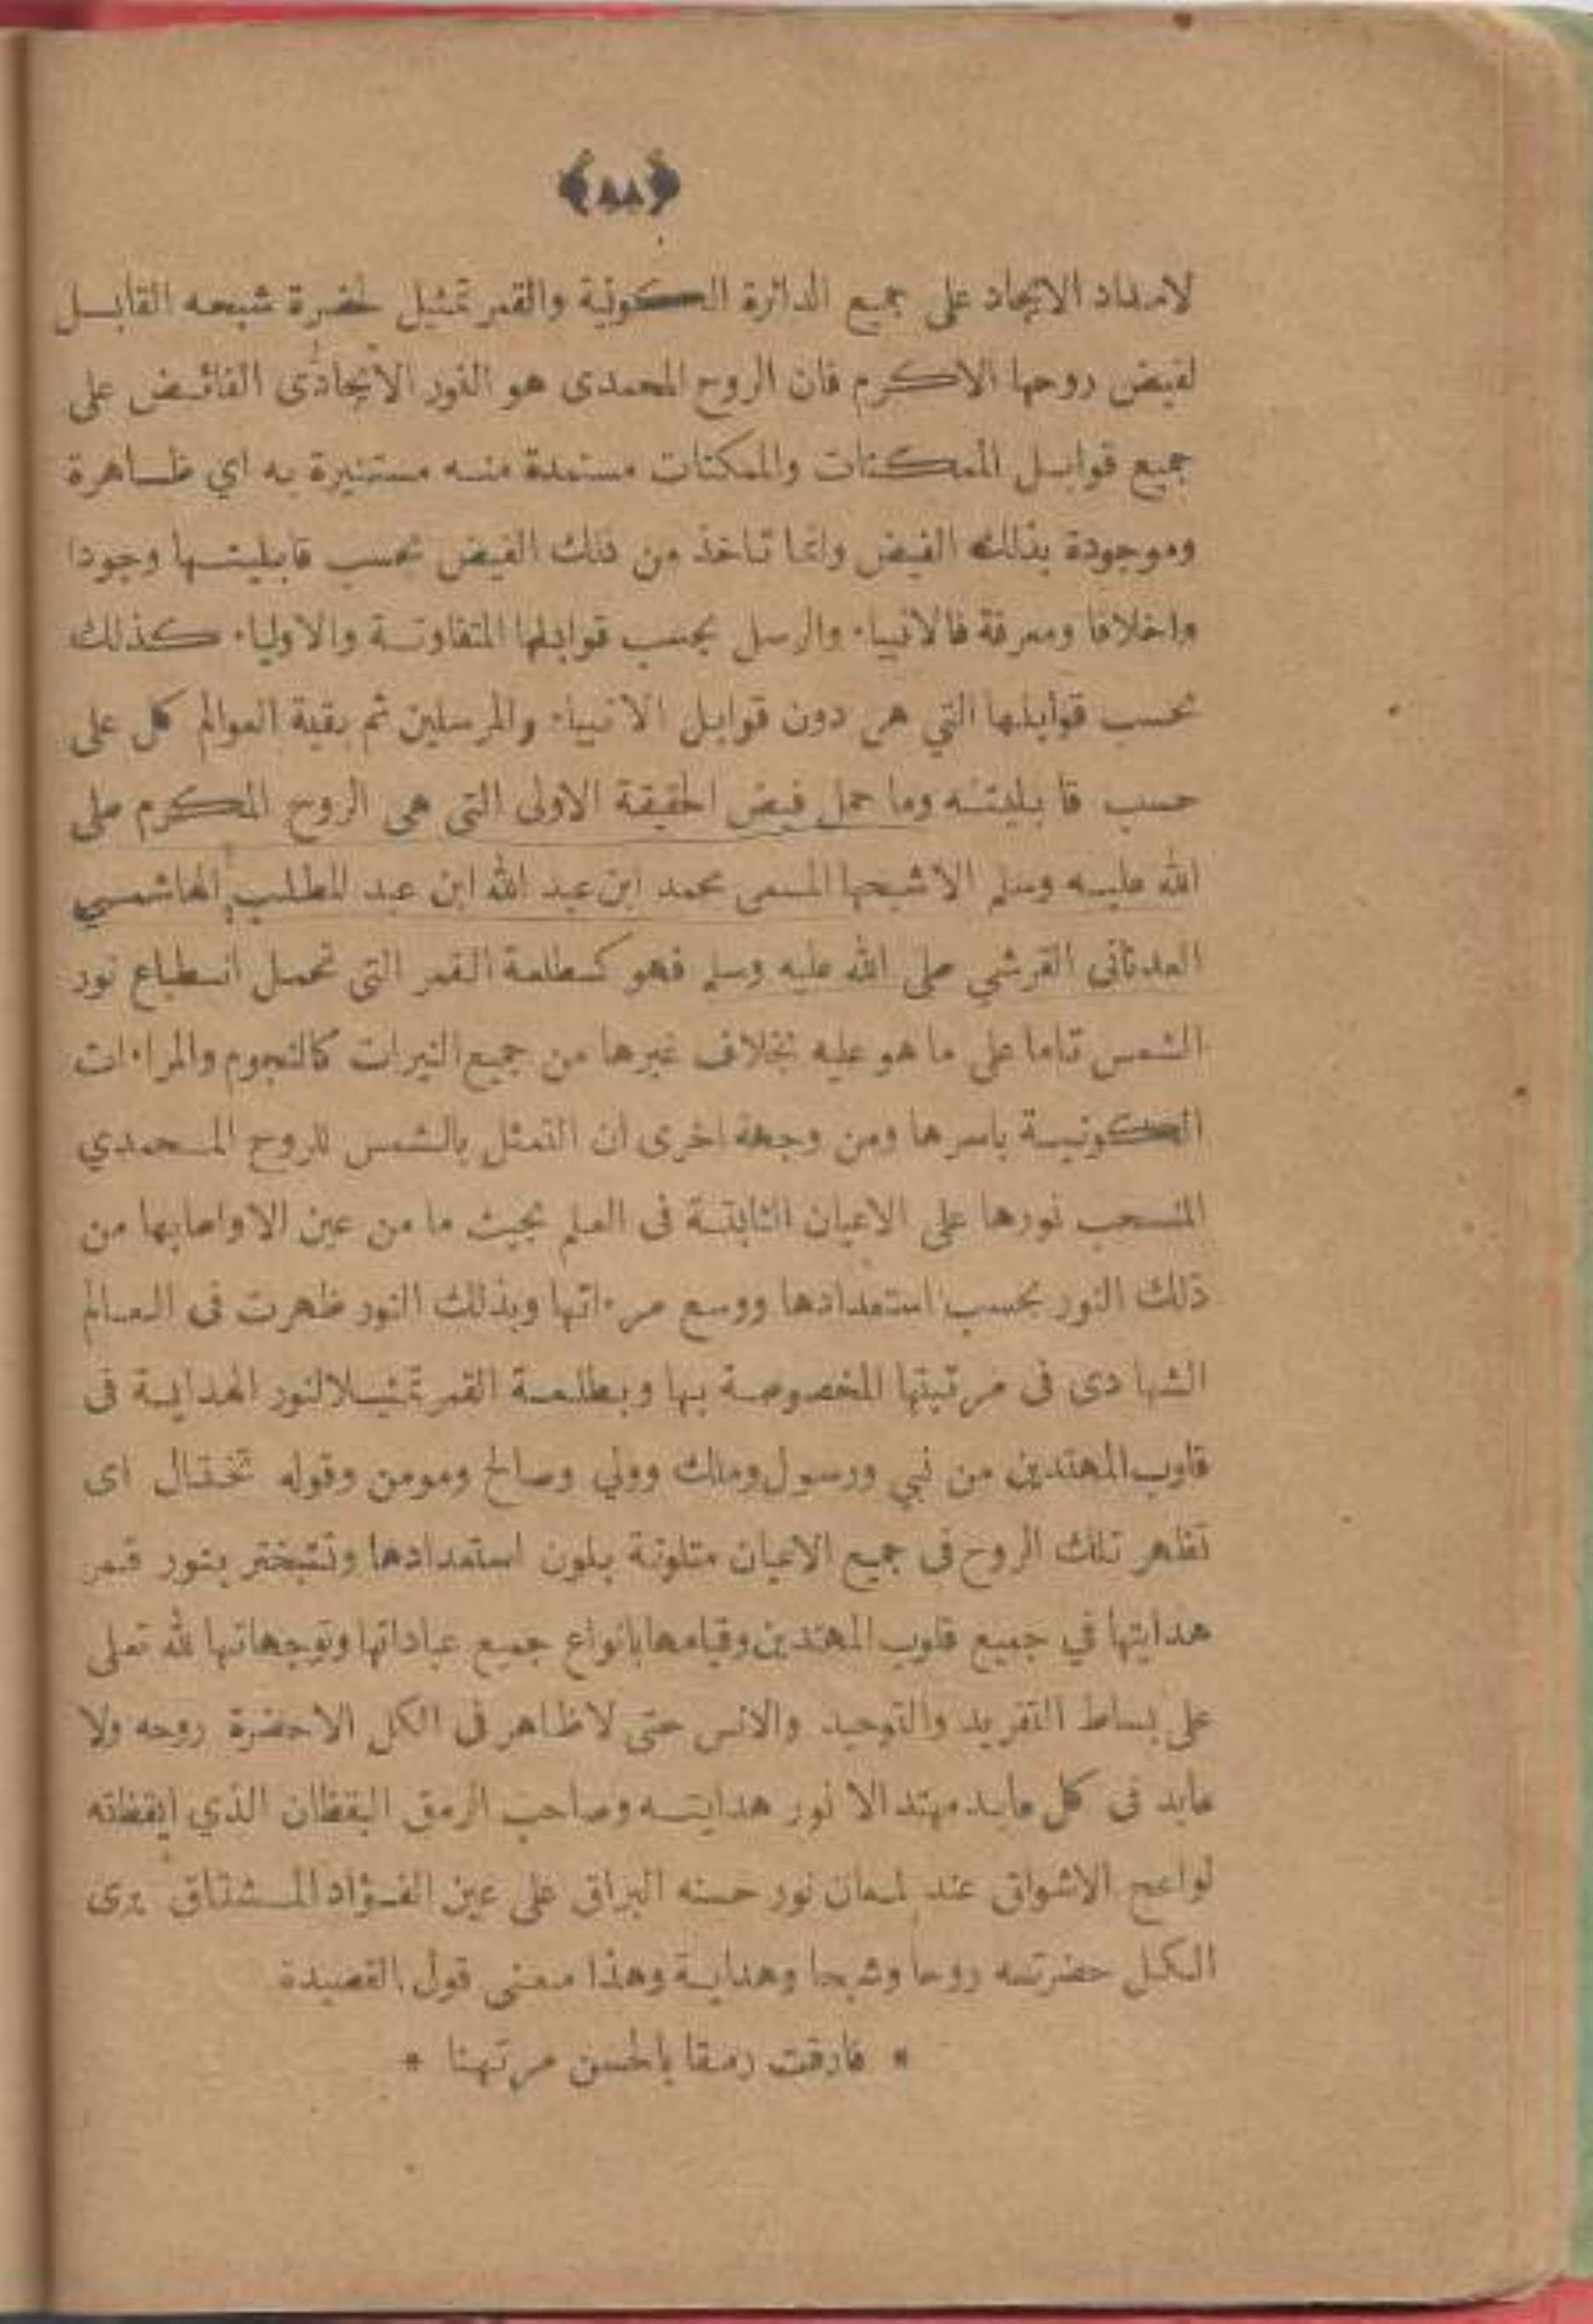 ﴿٨٨﴾
لامداد الايجاد على جميع الدائرة الكونية والقمر تمثيل لحضرة شبحه القابل
لفيض روحها الاكرم فان الروح المحمدى هو النور الايجادى الفائض على
جميع قوابل الممكنات والممكنات مستمدة منه مستنيرة به اي ظاهرة
وموجودة بذلك الفيض وانما تاخذ من ذلك الفيض بحسب قابليتها وجودا
واخلاقا ومعرفة فالانبياء والرسل بحسب قوابلها المتفاوتة والاولياء كذلك
بحسب قوابلها التي هى دون قوابل الانبياء والمرسلين ثم بقية العوالم كل على
حسب قا بليته وما حمل فيض الحقيقة الاولى التى هى الروح المكرم صلى
الله عليه وسلم الاشبحها المسمى محمد ابن عبد الله ابن عبد المطلب الهاشمي
العدنانى القرشي صلى الله عليه وسلم فهو كطلعة القمر التى تحمل انطباع نور
الشمس تاما على ما هو عليه بخلاف غيرها من جميع النيرات كالنجوم والمراءات
الكونية باسرها ومن وجهة اخرى ان التمثل بالشمس للروح المحمدي
المنسحب نورها على الاعيان الثابتة فى العلم بحيث ما من عين الاواصابها من
ذلك النور بحسب استعدادها ووسع مرءاتها وبذلك النور ظهرت فى العالم
الشها دى فى مرتبتها المخصوصة بها وبطلعة القمر تمثيلالنور الهداية فى
قلوب المهتدين من نبي ورسول وملك وولي وصالح ومومن وقوله تختال اى
تظهر تلك الروح فى جميع الاعيان متلونة بلون استعدادها وتتبختر بنور قمر
هدايتها في جميع قلوب المهتدين وقيامهابانواع جميع عباداتها وتوجهاتها لله تعلى
على بساط التفريد والتوحيد والانس حتى لاظاهر فى الكل الاحضرة روحه ولا
عابد فى كل عابد مهتد الا نور هدايته وصاحب الرمق اليقظان الذي ايقظته
لواعج الاشواق عند لمعان نور حسنه البراق على عين الفؤاد المشتاق يرى
الكل حضرته روحا وشبحا وهداية وهذا معنى قول القصيدة
* فارقت رمقا بالحسن مرتهنا *